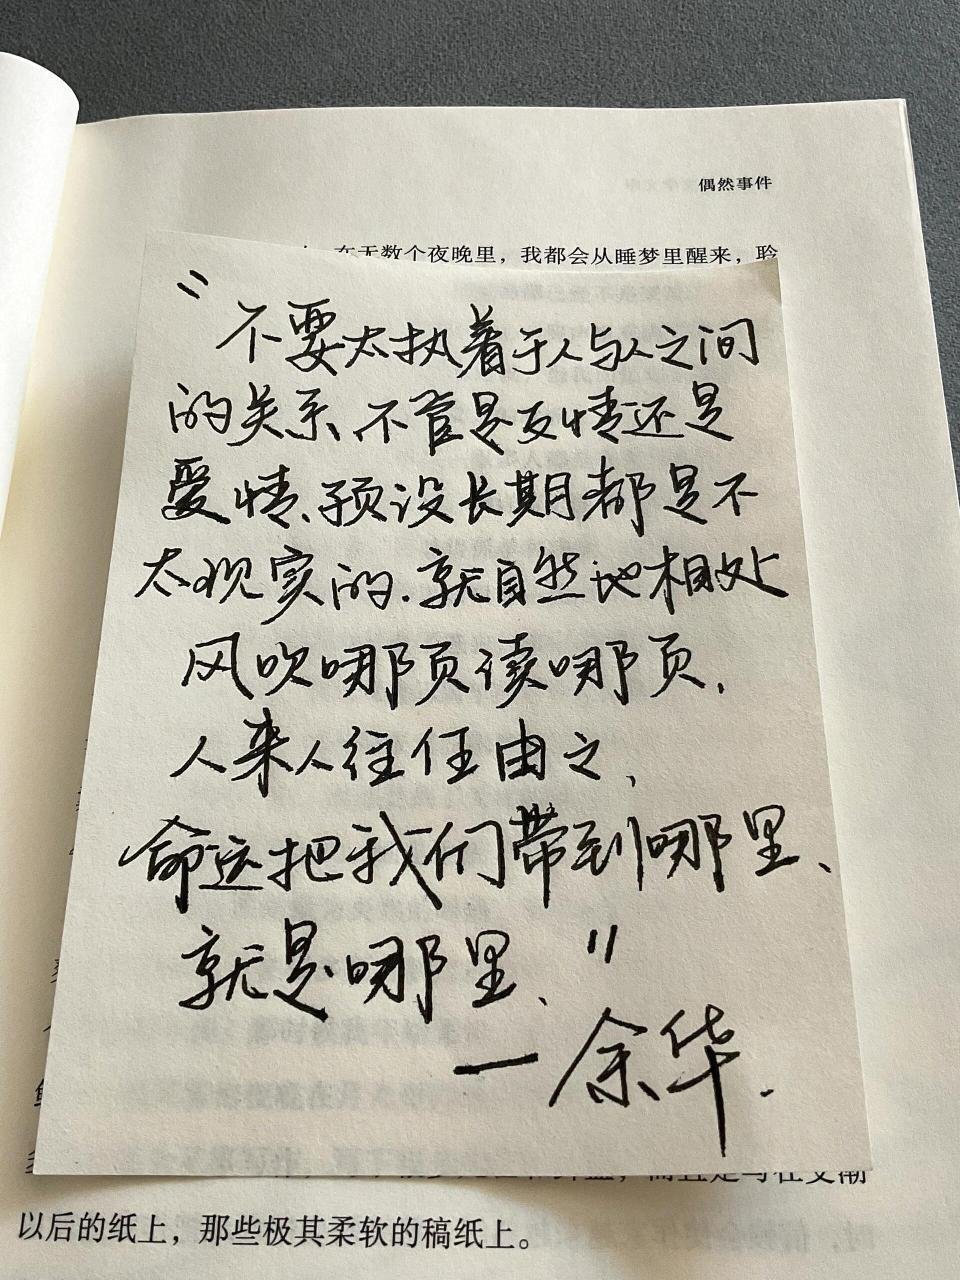 偶然事件
在无数个夜晚里，我都会从睡梦里醒来，聆
"不要太执着于人与人之间
的关系、不管是友情还是
爱情、预设长期都是不
太现实的.就自然地相处
风吹哪页读哪页,
人来人往任由之,
命运把我们带到哪里、
就是哪里、"
—余华.
以后的纸上，那些极其柔软的稿纸上。